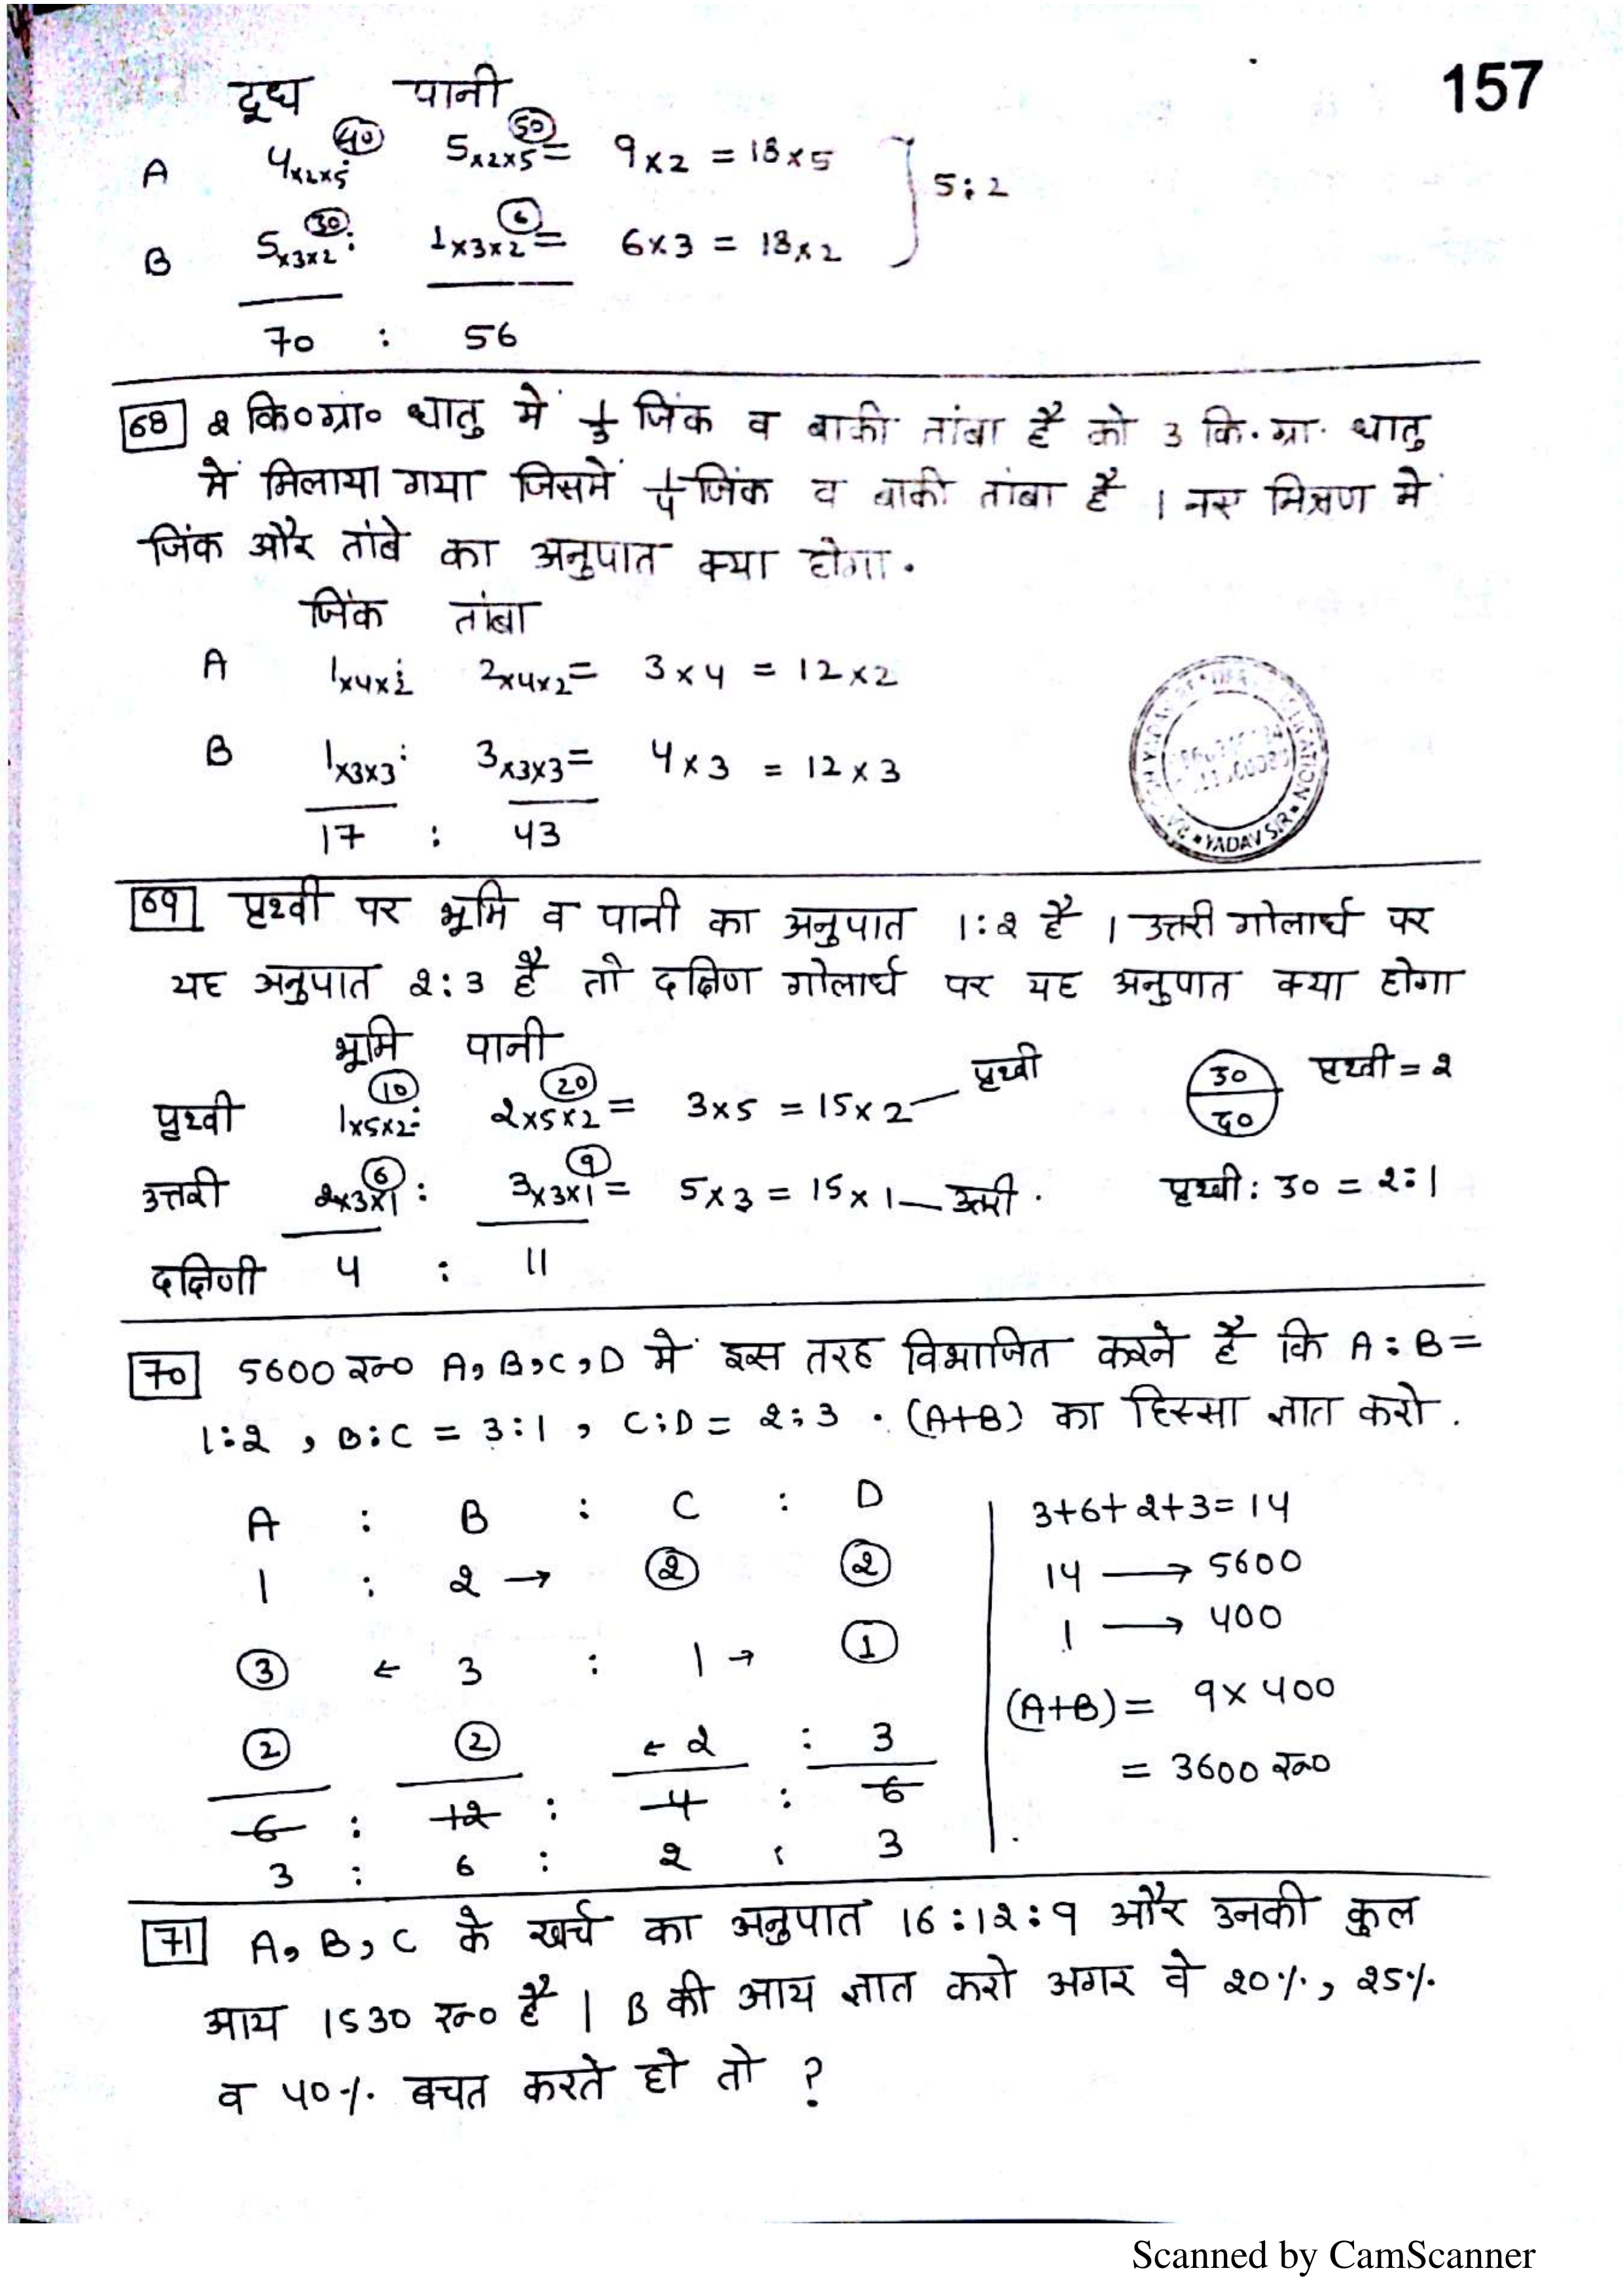 157
दूध पानी
A 4×2×5 (40) : 5×2×5 (50) = 9×2 = 18×5
5:2
B 5×3×2 (30) : 1×3×2 (6) = 6×3 = 18×2
70 : 56
68 2 कि०ग्रा० धातु में 1/3 जिंक व बाकी तांबा है को 3 कि.ग्रा. धातु
में मिलाया गया जिसमें 1/4 जिंक व बाकी तांबा है । नए मिश्रण में
जिंक और तांबे का अनुपात क्या होगा.
जिंक तांबा
A 1×4×2 : 2×4×2 = 3×4 = 12×2
B 1×3×3 : 3×3×3 = 4×3 = 12×3
17 : 43
YADAV SIR
69 पृथ्वी पर भूमि व पानी का अनुपात 1:2 है । उत्तरी गोलार्ध पर
यह अनुपात 2:3 है तो दक्षिण गोलार्ध पर यह अनुपात क्या होगा
भूमि पानी
पृथ्वी 1×5×2 (10) : 2×5×2 (20) = 3×5 = 15×2 — पृथ्वी
30 पृथ्वी = 2
उत्तरी 2×3×1 (6) : 3×3×1 (9) = 5×3 = 15×1 — उत्तरी.
पृथ्वी : 30 = 2:1
दक्षिणी 4 : 11
70 5600 रु० A, B, C, D में इस तरह विभाजित करने है कि A:B =
1:2 , B:C = 3:1 , C:D = 2:3 . (A+B) का हिस्सा ज्ञात करो .
A : B : C : D
1 : 2 → (2) (2)
(3) ← 3 : 1 → (1)
(2) (2) ← 2 : 3
6 : 12 : 4 : 6
3 : 6 : 2 : 3
3+6+2+3=14
14 → 5600
1 → 400
(A+B) = 9×400
= 3600 रु०
71 A, B, C के खर्च का अनुपात 16:12:9 और उनकी कुल
आय 1530 रु० है | B की आय ज्ञात करो अगर वे 20%, 25%
व 40% बचत करते हो तो ?
Scanned by CamScanner